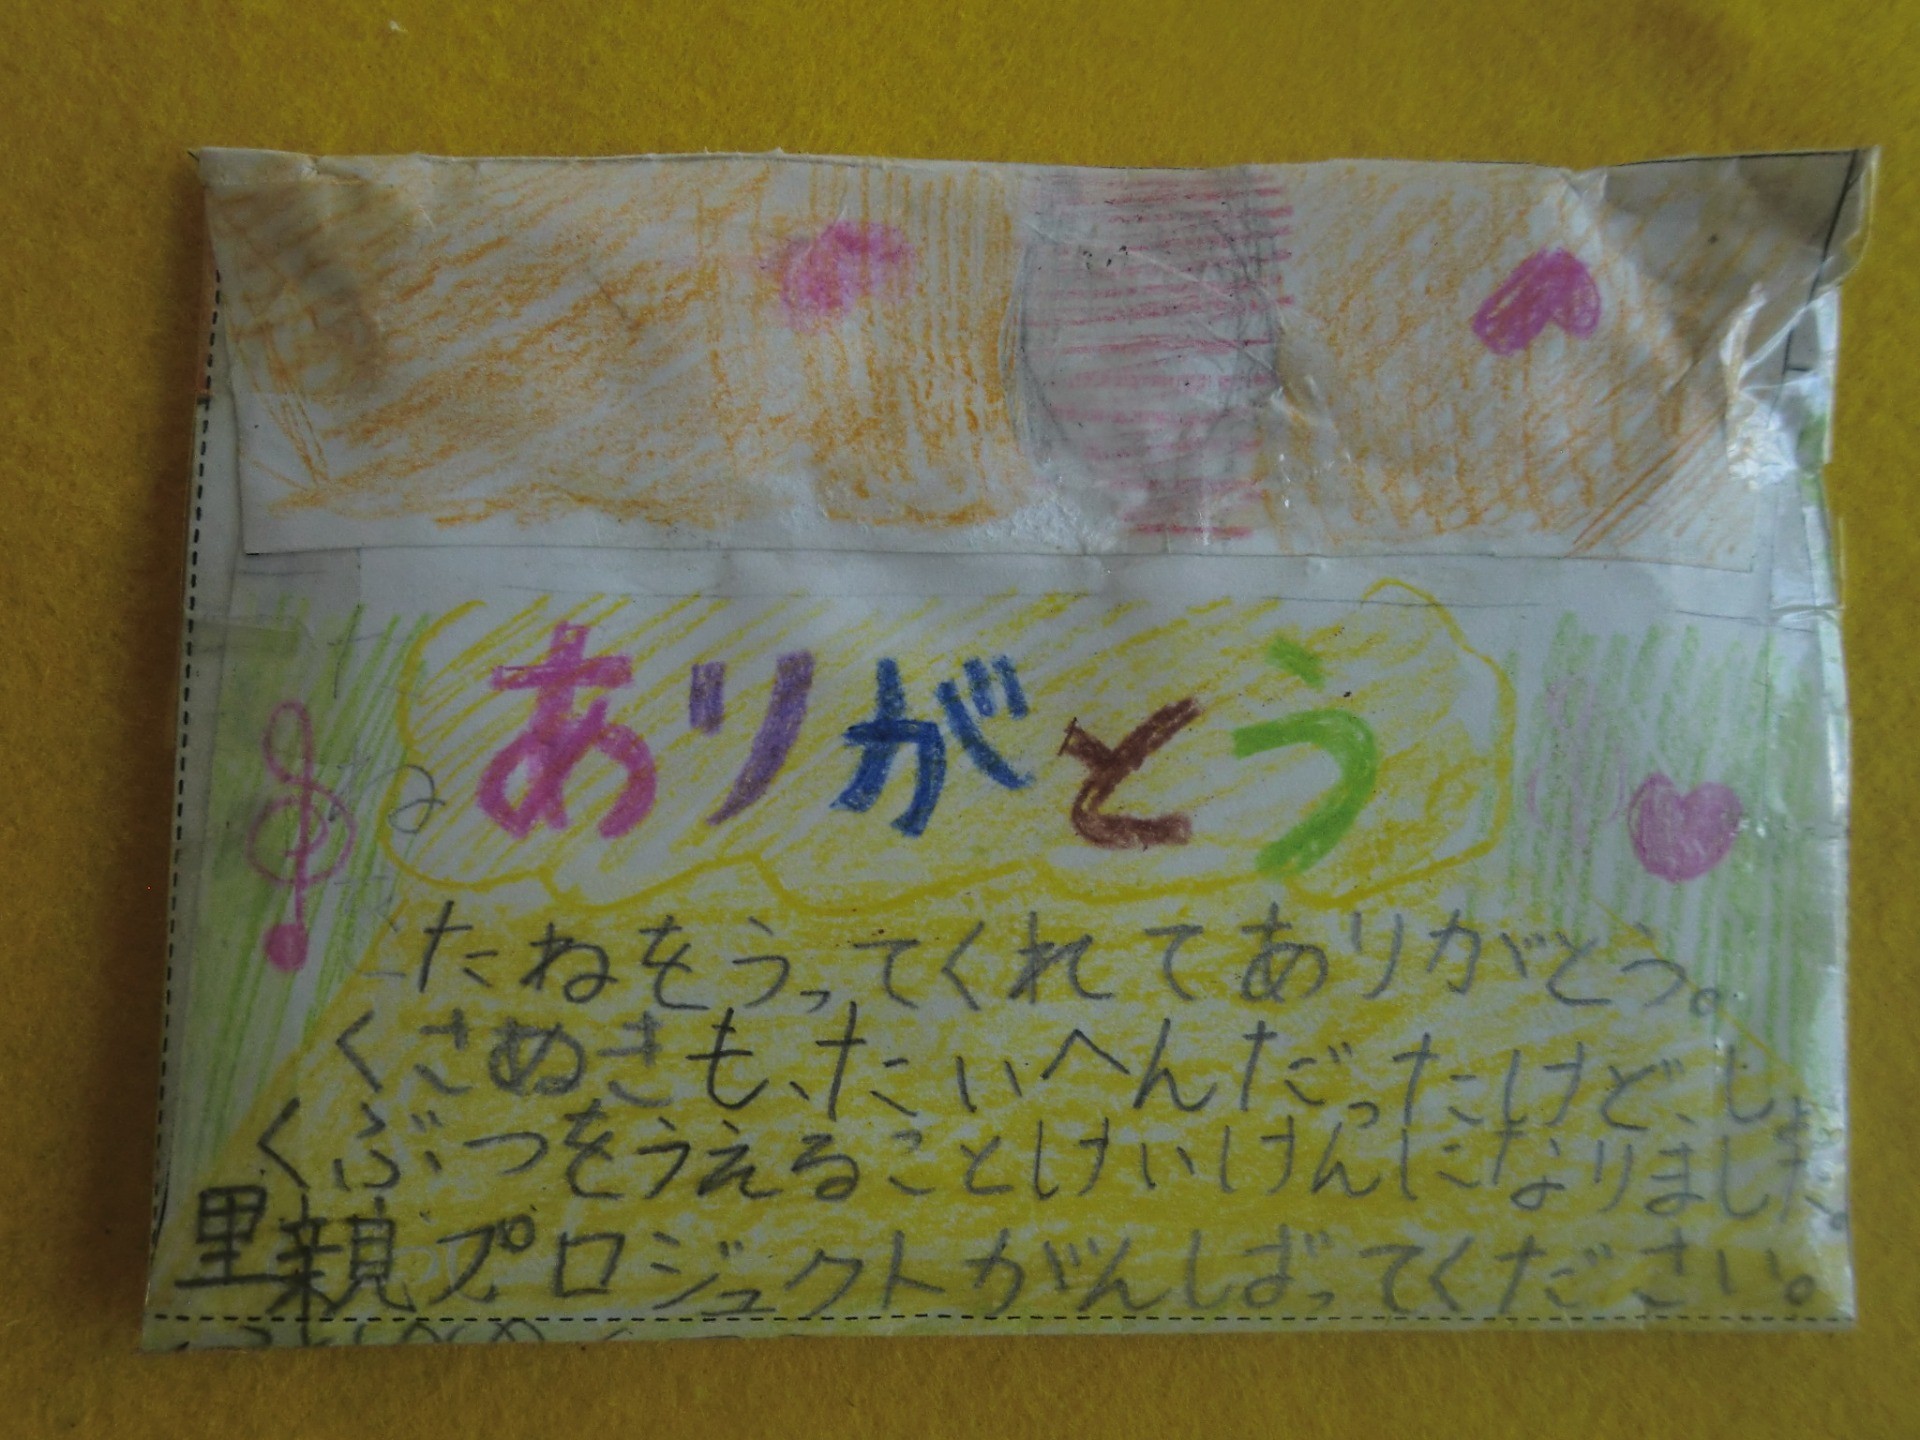 ありがとう
たねをうってくれてありがとう。
くさぬきも、たいへんだったけど、しょ
くぶつをうえることけいけんになりました。
里親プロジェクトがんばってください。